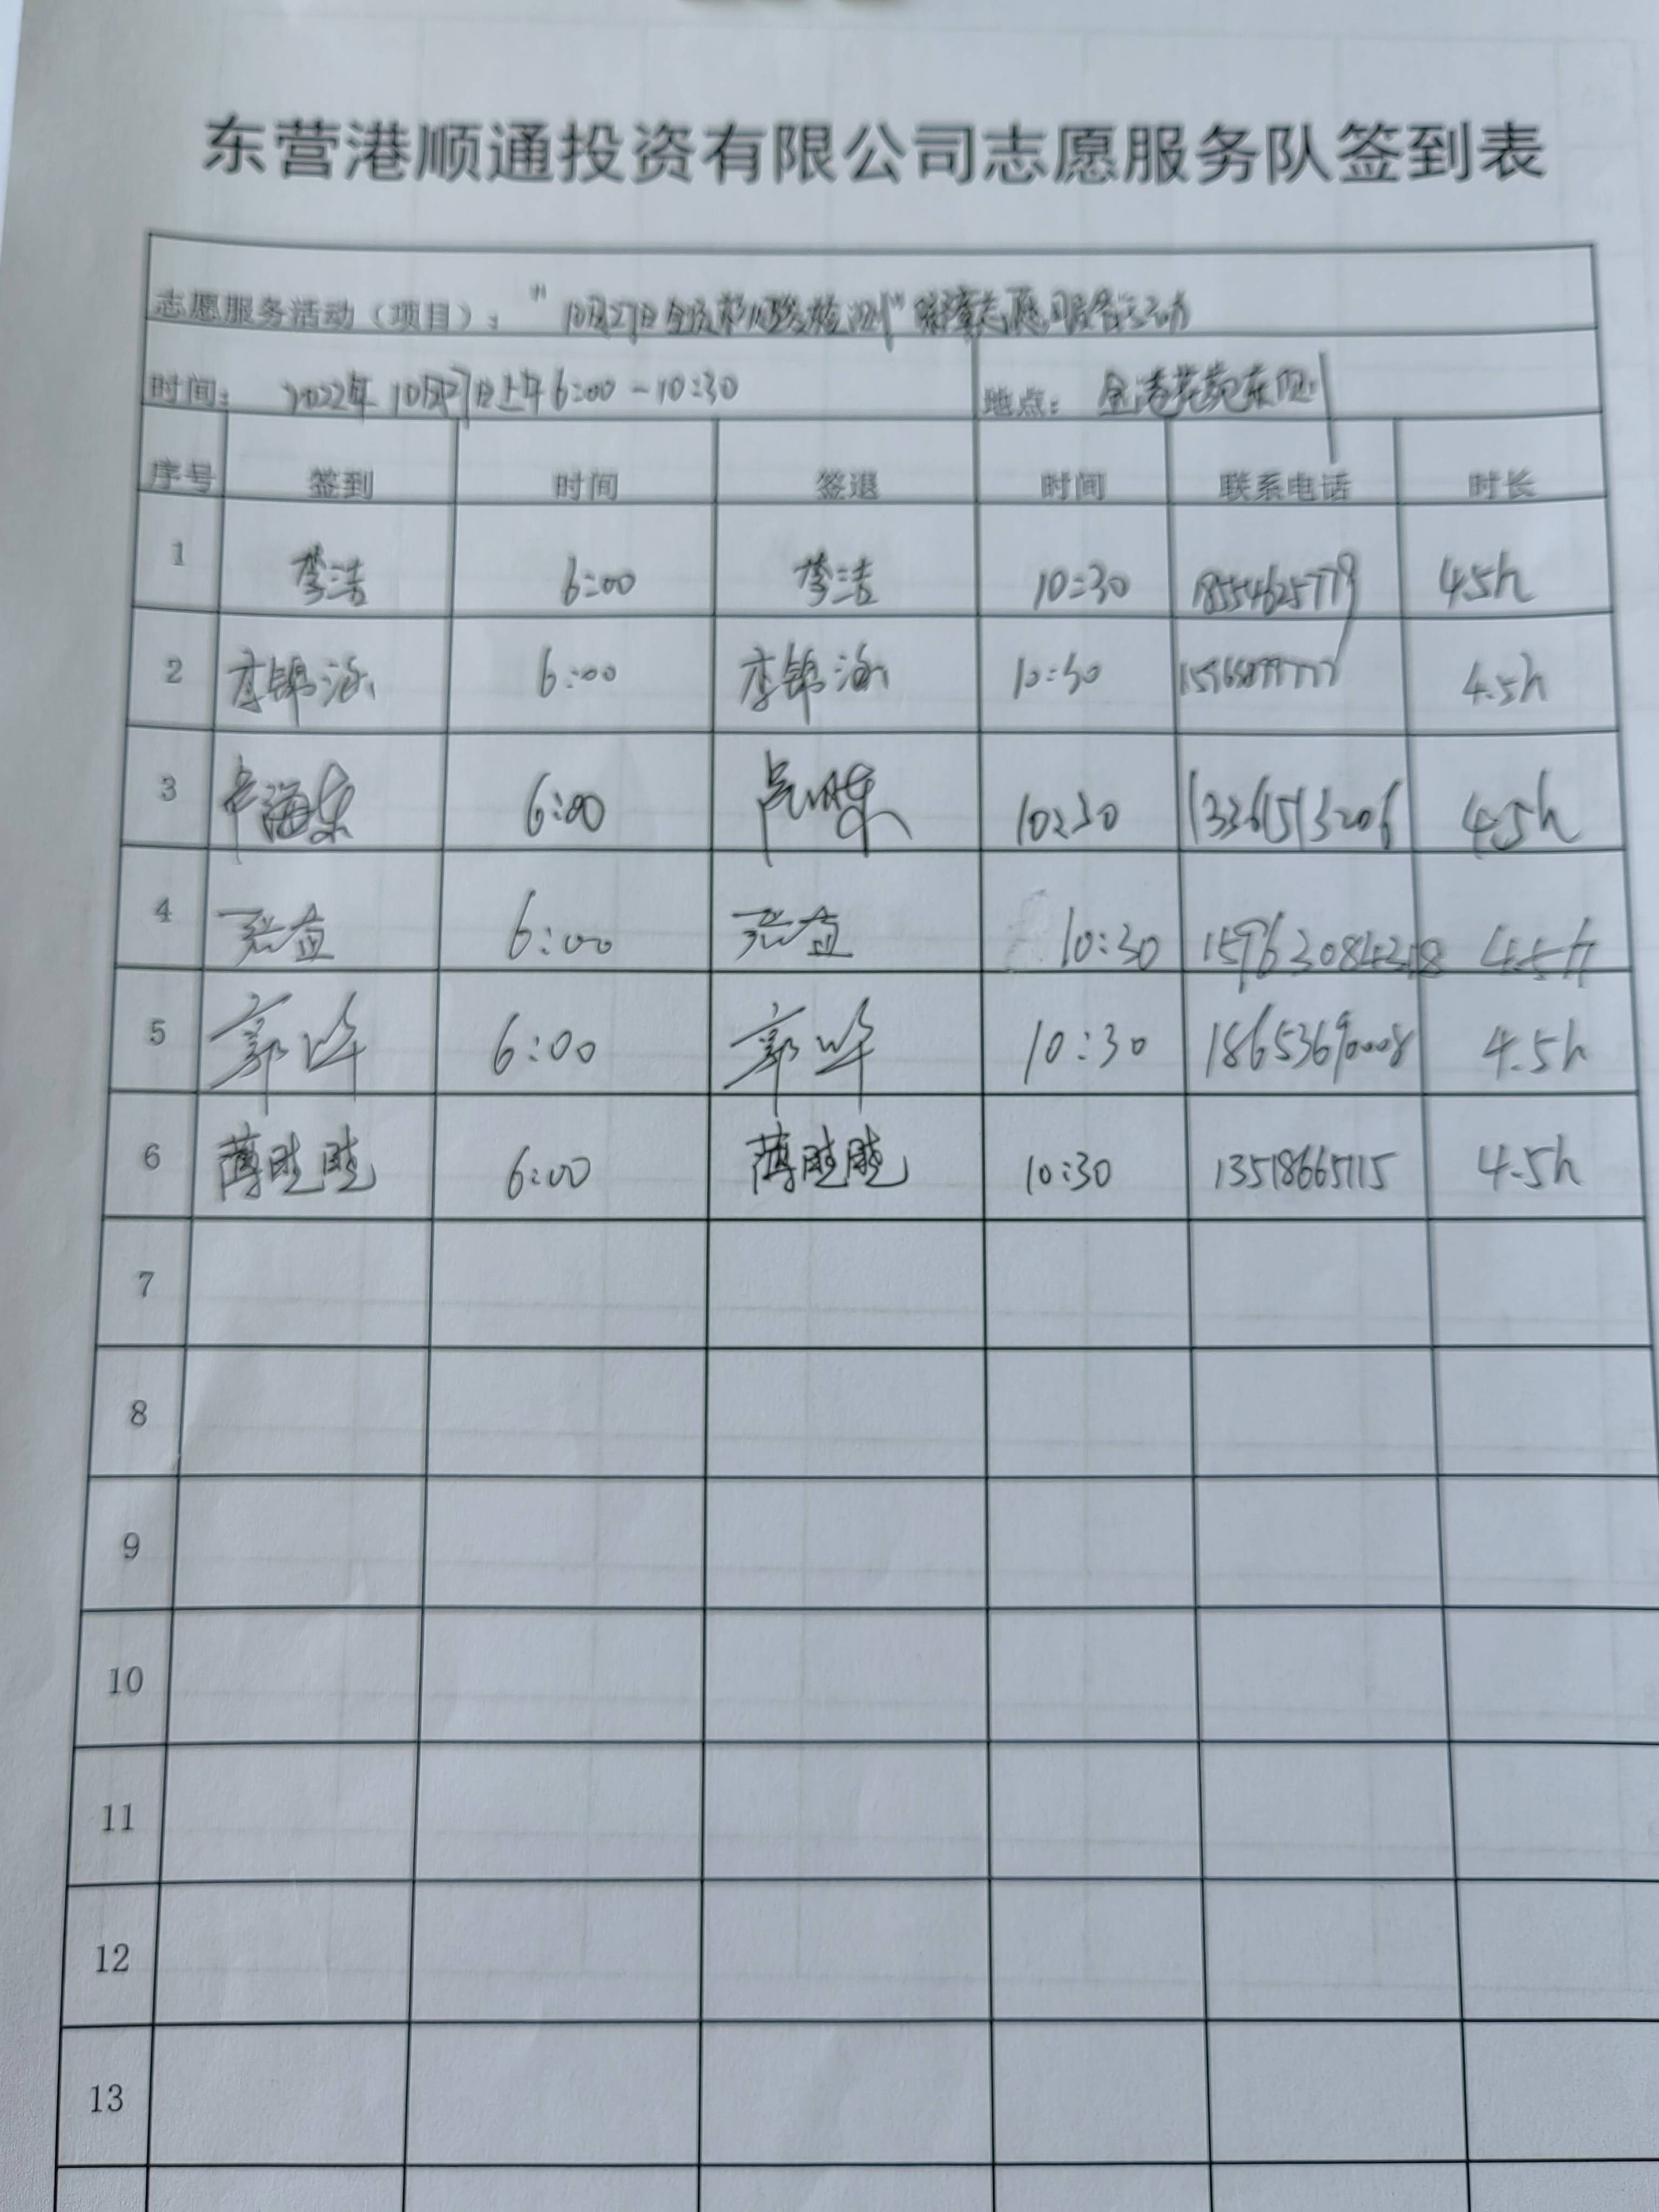 东营港顺通投资有限公司志愿服务队签到表
志愿服务活动（项目）： "10月27日全员核酸检测"志愿服务活动
时间： 2022年10月27日上午6:00-10:30 地点： 金港花苑东区
序号 签到 时间 签退 时间 联系电话 时长
1 李洁 6:00 李洁 10:30 18554625779 4.5h
2 李锦涵 6:00 李锦涵 10:30 4.5h
3 海东 6:00 10:30 13361513206 4.5h
4 张益 6:00 张益 10:30 15963084318 4.5h
5 郭晔 6:00 郭晔 10:30 18653690008 4.5h
6 薄 6:00 薄 10:30 13518665115 4.5h
7
8
9
10
11
12
13